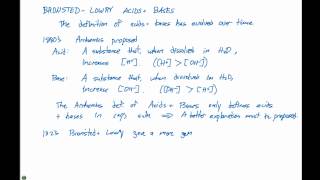 BRONSTED-LOWRY ACIDS + BASES
The definition of acids + bases has evolved over time
1880s Arrhenius proposed
Acid: A substance that, when dissolved in H2O,
Increase [H+]. ([H+] > [OH-])
Base: A substance that, when dissolved in H2O,
Increase [OH-]. ([OH-] > [H+])
The Arrhenius def. of Acids + Bases only defines acids
+ bases in aqs. solns ⇒ A better explanation must be proposed
1923 Bronsted + Lowry gave a more gen